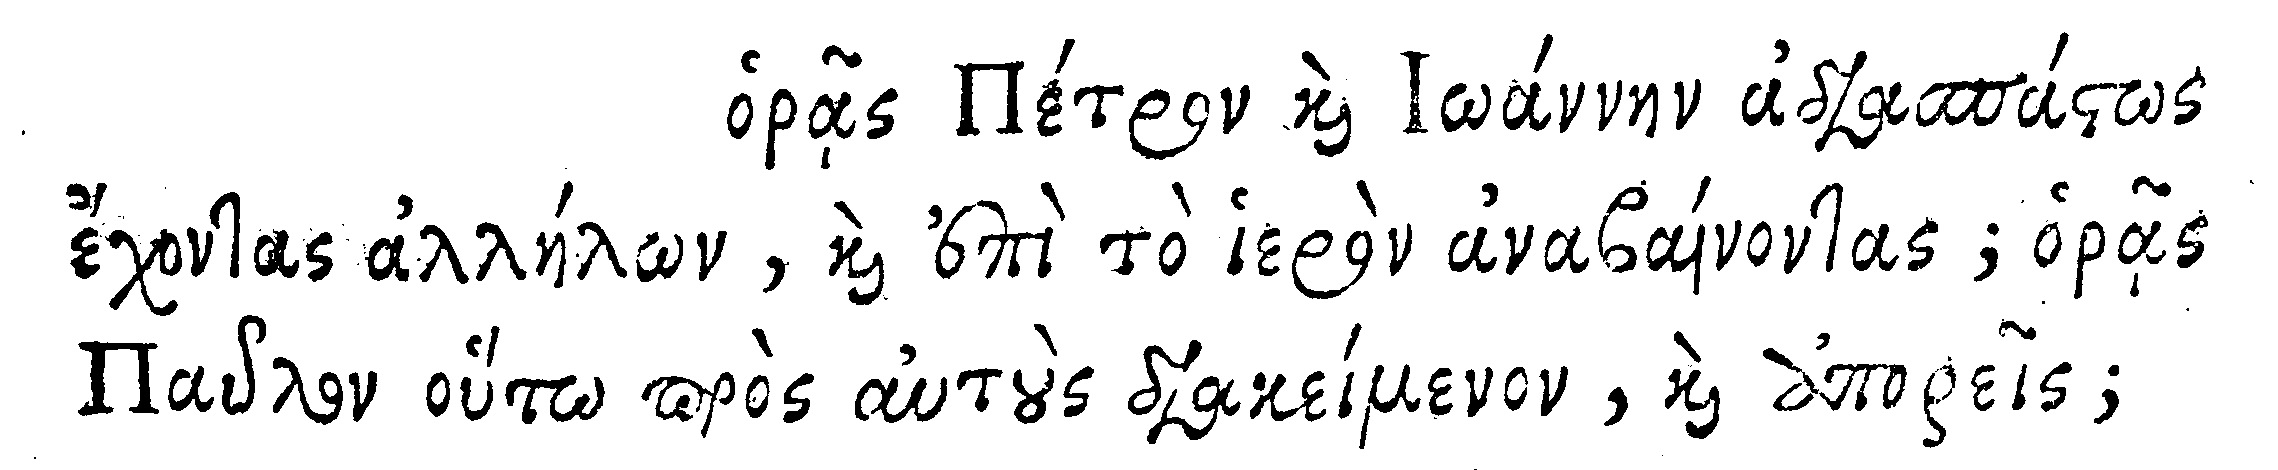 ὁρᾷς Πέτρον καὶ Ἰωάννην ἀδιασπάστως
ἔχοντας ἀλλήλων, καὶ ἐπὶ τὸ ἱερὸν ἀναβαίνοντας; ὁρᾷς
Παῦλον οὕτω πρὸς αὐτοὺς διακείμενον, καὶ ἀπορεῖς;